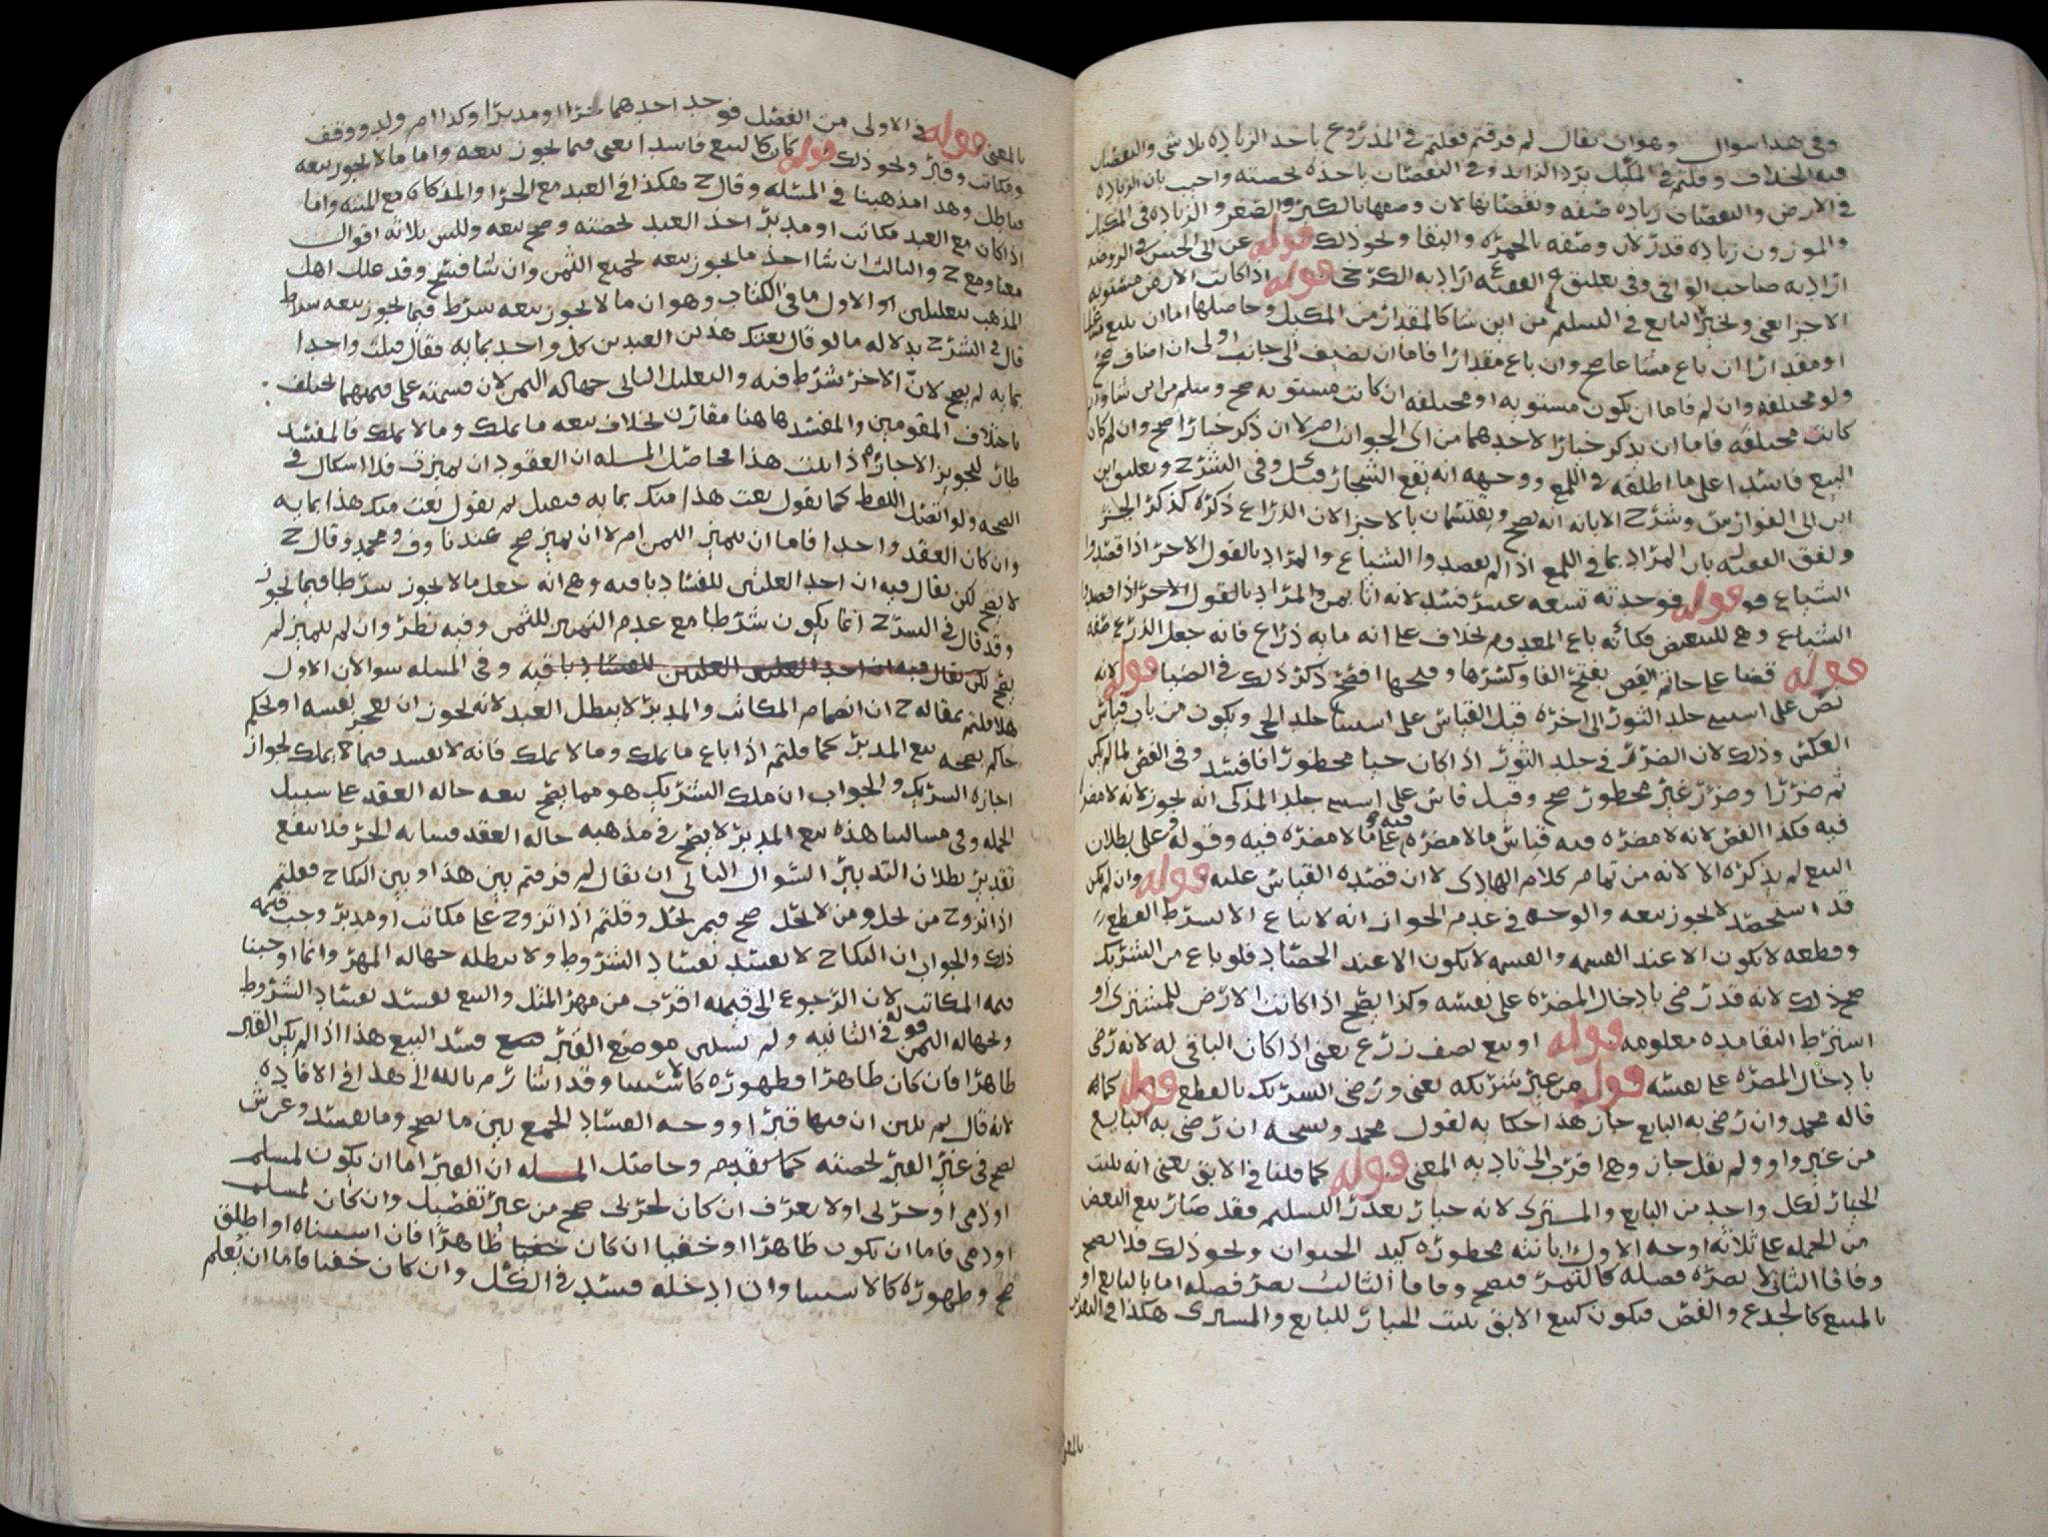 وفي هذا سوال وهو ان يقال لم فرقتم فقلتم في المذروع ياخذ الزيادة بلا شي والنقصان
فيه الخلاف وقلتم في المكيل يرد الزايد وفي النقصان ياخذه بحصته واجيب بان الزيادة
في الارض والنقصان زيادة صفه ونقصانها لان وصفها بالكبر والصغر والزيادة في المكيل
والموزون زيادة قدر لان وصفه بالحمره والنقا ونحو ذلك قوله عن ابى الحسن في الروضه
اراد به صاحب الوافي وفي تعليق الفقيه ع اراد به الكرخي قوله اذا كانت الارض مستويه
الاجزا يعني ويخير البايع في التسليم من اين شا كالمقدار من المكيل وحاصلها اما ان يبيع مشاعا
او مقدارا ان باع مشاعا صح وان باع مقدارا فاما ان يضيف الى جانب اولى ان اضاف صح
ولو مختلفه وان لم فاما ان يكون مستويه او مختلفه ان كانت مستويه صح وسلم من اين شا وان
كانت مختلفه فاما ان يذكر خيارا لاحدهما من اي الجوانب ام لا ان ذكر خيارا صح وان لم كان
البيع فاسدا على ما اطلقه في اللمع ووجهه انه يقع الشجار وقيل وفي الشرح وتعليق ابن
ابي الفوارس وشرح الابانه انه يصح ويقتسمان بالاجزا لان الذراع ذكره كذكر الجز
ولفق الفقيه بان المراد بما في اللمع اذا لم يقصدوا الشياع والمراد بالقول الاخر اذا قصدوا
الشياع فو قوله فوجدته تسعه عشر فسد لانه اثا بمن والمراد بالقول الاخر اذا قصدوا
الشياع وهي للتبعيض فكانه باع المعدوم بخلاف على انه مايه ذراع فانه جعل الذرع صفه
قوله قضا على خاتم الفص بفتح الفا وكسرها وفتحها افصح ذكر ذلك في الضيا قوله لانه
نص على استثنى جلد الثور الى اخره قيل القياس على استثنا جلد الحي ويكون من باب قياس
العكس وذلك لان الضرر في جلد الثور اذا كان حيا محظورا فافسد وفي الفص لما لم يكن
ثم ضررا وضرر غير محظور صح وقيل قاس على استثنى جلد المذكى انه يجوز لانه لا مضره
فيه فكذا الفص لانه لا مضره فيه قياس ما لا مضره فيه على ما لا مضره فيه وقوله وعلى بطلان
البيع لم يذكره الا لانه من تمام كلام الهادي لا ان قصده القياس عليه قوله وان لم يكن
قد استحصد لا يجوز بيعه والوجه في عدم الجواز انه لا يباع الا بشرط القطع
وقطعه لا يكون الا عند القسمه والقسمه لا يكون الا عند الحصاد فلو باع من الشريك
صح ذلك لانه قد رضى بادخال المضره على نفسه وكذا يصح اذا كانت الارض للمشتري او
اشترط البقا مده معلومه قوله او بيع نصف زرع يعني اذا كان الباقي له لانه رضى
بادخال المضره على نفسه قوله من غير شريكه يعني ورضى الشريك بالقطع قوله كما
قاله محمد وان رضي به البايع جاز هذا حكايه لقول محمد ونسخه ان رضي به البايع
من غير واو ولم يقل جاز وهي اقرب الى تاديه المعنى قوله كما قلنا في الابق يعني انه يثبت
الخيار لكل واحد من البايع والمشتري لانه خيار تعذر التسليم فقد صار بيع البعض
من الجمله على ثلاثه اوجه الاول ابانته محظوره كيد الحيوان ونحو ذلك فلا يصح
وفاقا الثاني لا يضره فصله كالتمر فيصح وفاقا الثالث يضر فصله اما بالبايع او
بالمبيع كالجذع والفص فيكون كبيع الابق يثبت الخيار للبايع والمشتري هكذا في التقرير
بالمعنى
بالمعنى قوله في الاولى من الفصل فوجد احدهما حرا او مدبرا وكذا ام ولد ووقف
ومكاتب وقبر ونحو ذلك قوله كان كالبيع فاسدا يعني فيما يجوز بيعه واما ما لا يجوز بيعه
فباطل وهذا مذهبنا في المسئله وقال ح هكذا في العبد مع الحر والمذكاه مع الميته واما
اذا كان مع العبد مكاتب او مدبر اخذ العبد بحصته وصح بيعه وللش ثلاثه اقوال
معنا ومع ح والثالث ان شا اخذ ما يجوز بيعه بجميع الثمن وان شا فسخ وقد علل اهل
المذهب بتعليلين الاول ما في الكتاب وهو ان ما لا يجوز بيعه شرط فيما يجوز بيعه شرط
قال في الشرح بدلاله ما لو قال بعتك هذين العبدين كل واحد بمايه فقال قبلت واحدا
بمايه لم يصح لان الاخر شرط فيه والتعليل الثاني جهاله الثمن لان قسمته على قيمتهما يختلف
باختلاف المقومين والمفسد هاهنا مقارن بخلاف بيعه ما يملك وما لا يملك فالمفسد
طار لتجويز الاجازه اذا ثبت هذا فحاصل المسله ان العقود ان تميزت فلا اشكال في
الصحه ولو اتصل اللفظ كما يقول بعت هذا منك بمايه فيقبل ثم يقول بعت منك هذا بمايه
وان كان العقد واحدا فاما ان يتميز الثمن ام لا ان تميز صح عندنا وف ومحمد وقال ح
لا يصح لكن يقال فيه ان احد العلتين للفساد باقيه وهي انه جعل ما لا يجوز شرطا فيما يجوز
وقد قال في الشرح انما يكون شرطا مع عدم التمييز للثمن وفيه نظر وان لم يتميز لم
يصح لكن يقال فيه ان احد العلتين للفساد باقيه وفي المسله سوالان الاول
هلا قلتم بمقاله ح ان انضمام المكاتب والمدبر لا يبطل العبد لانه يجوز ان يعجز نفسه او يحكم
حاكم بصحه بيع المدبر كما قلتم اذا باع ما يملك وما لا يملك فانه لا يفسد فيما لا يملك لجواز
اجازه الشريك والجواب ان ملك الشريك هو مما يصح بيعه حاله العقد على سبيل
الجمله وفي مسالتنا هذه بيع المدبر لا يصح في مذهبه حاله العقد فشابه الحر فلا ينفع
تقدير بطلان التدبير السوال الثاني ان يقال لم فرقتم بين هذا وبين النكاح فقلتم
اذا تزوج من تحل ومن لا تحل صح فيمن تحل وقلتم اذا تزوج على مكاتب او مدبر وجب قيمه
ذلك والجواب ان النكاح لا يفسد بفساد الشروط ولا يبطله جهاله المهر وانما اوجبنا
قيمه المكاتب لان الرجوع الى قيمته اقرب من مهر المثل والبيع يفسد بفساد الشروط
ولجهاله الثمن قوله في الثانيه ولم يستثن موضع القبر فسد البيع هذا اذا لم يكن القبر
ظاهرا فان كان ظاهرا فظهوره كالاستثنا وقد اشار م بالله الى هذا في الافاده
لانه قال ثم تبين ان فيها قبرا ووجه الفساد الجمع بين ما يصح وما يفسد وعن ش
يصح في غير القبر بحصته كما تقدم وحاصل المسله ان القبر اما ان يكون لمسلم
او ذمي او حربى او لا يعرف ان كان لحربى صح من غير تفصيل وان كان لمسلم
او ذمي فاما ان يكون ظاهرا او خفيا ان كان ظاهرا فان استثناه او اطلق
صح وظهوره كالاستثنا وان ادخله فسد في الكل وان كان خفيا فاما ان يعلم